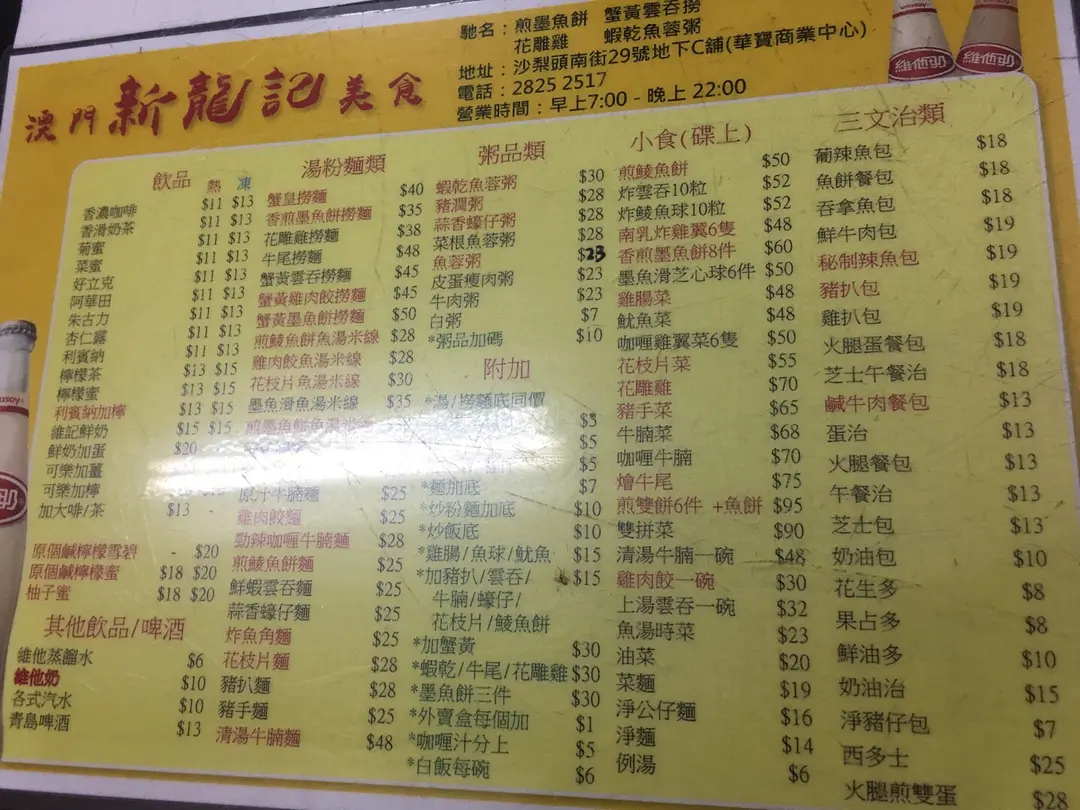 馳名：煎墨魚餅 蟹黃雲吞撈
花雕雞 蝦乾魚蓉粥
地址：沙梨頭南街29號地下C舖(華寶商業中心)
電話：2825 2517
營業時間：早上7:00 - 晚上 22:00
澳門新龍記美食
維他奶 維他奶
飲品
熱 凍
香濃咖啡 $11 $13
香滑奶茶 $11 $13
菊蜜 $11 $13
菜蜜 $11 $13
好立克 $11 $13
阿華田 $11 $13
朱古力 $11 $13
杏仁露 $11 $13
利賓納 $11 $13
檸檬茶 $13 $15
檸檬蜜 $13 $15
利賓納加檸 $13 $15
維記鮮奶 $15 $15
鮮奶加蛋 $20
可樂加薑
可樂加檸
加大啡/茶 $13 -
原個鹹檸檬雪碧 - $20
原個鹹檸檬蜜 $18 $20
柚子蜜 $18 $20
其他飲品/啤酒
維他蒸餾水 $6
維他奶 $10
各式汽水 $10
青島啤酒 $13
湯粉麵類
蟹皇撈麵 $40
香煎墨魚餅撈麵 $35
花雕雞撈麵 $38
牛尾撈麵 $48
蟹黃雲吞撈麵 $45
蟹黃雞肉餃撈麵 $45
蟹黃墨魚餅撈麵 $50
煎鯪魚餅魚湯米線 $28
雞肉餃魚湯米線 $28
花枝片魚湯米線 $30
墨魚滑魚湯米線 $35
煎墨魚餅魚湯米線
原汁牛腩麵 $25
雞肉餃麵 $25
勁辣咖喱牛腩麵 $28
煎鯪魚餅麵 $25
鮮蝦雲吞麵 $25
蒜香蠔仔麵 $25
炸魚角麵 $25
花枝片麵 $28
豬扒麵 $28
豬手麵 $25
清湯牛腩麵 $48
粥品類
蝦乾魚蓉粥 $30
豬潤粥 $28
蒜香蠔仔粥 $28
菜根魚蓉粥 $28
魚蓉粥 $23
皮蛋瘦肉粥 $23
牛肉粥 $23
白粥 $7
*粥品加碼 $10
附加
*湯/撈麵底同價
$3
$5
$5
*麵加底 $7
*炒粉麵加底 $10
*炒飯底 $10
*雞腸/魚球/魷魚 $15
*加豬扒/雲吞/ $15
牛腩/蠔仔/
花枝片/鯪魚餅
*加蟹黃 $30
*蝦乾/牛尾/花雕雞 $30
*墨魚餅三件 $30
*外賣盒每個加 $1
*咖喱汁分上 $5
*白飯每碗 $6
小食(碟上)
煎鯪魚餅 $50
炸雲吞10粒 $52
炸鯪魚球10粒 $52
南乳炸雞翼6隻 $48
香煎墨魚餅8件 $60
墨魚滑芝心球6件 $50
雞腸菜 $48
魷魚菜 $48
咖喱雞翼菜6隻 $50
花枝片菜 $55
花雕雞 $70
豬手菜 $65
牛腩菜 $68
咖喱牛腩 $70
燴牛尾 $75
煎雙餅6件 +魚餅 $95
雙拼菜 $90
清湯牛腩一碗 $48
雞肉餃一碗 $30
上湯雲吞一碗 $32
魚湯時菜 $23
油菜 $20
菜麵 $19
淨公仔麵 $16
淨麵 $14
例湯 $6
三文治類
葡辣魚包 $18
魚餅餐包 $18
吞拿魚包 $18
鮮牛肉包 $19
秘制辣魚包 $19
豬扒包 $19
雞扒包 $19
火腿蛋餐包 $18
芝士午餐治 $18
鹹牛肉餐包 $13
蛋治 $13
火腿餐包 $13
午餐治 $13
芝士包 $13
奶油包 $10
花生多 $8
果占多 $8
鮮油多 $10
奶油治 $15
淨豬仔包 $7
西多士 $25
火腿煎雙蛋 $28